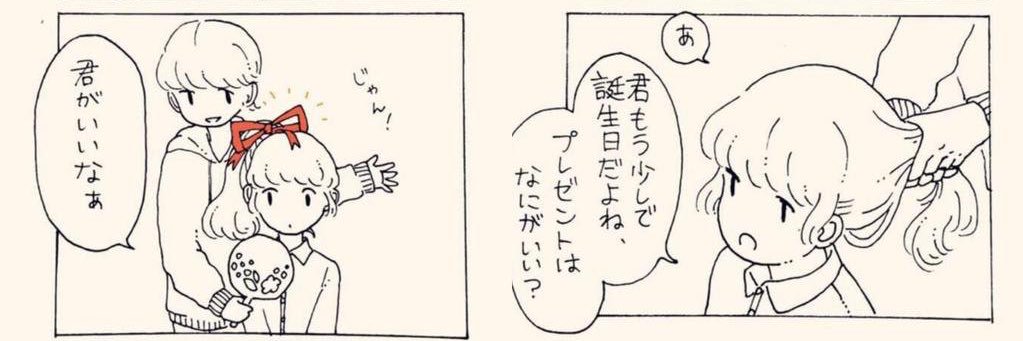 あ
君もう少しで
誕生日だよね、
プレゼントは
なにがいい？
じゃん！
君がいいなぁ